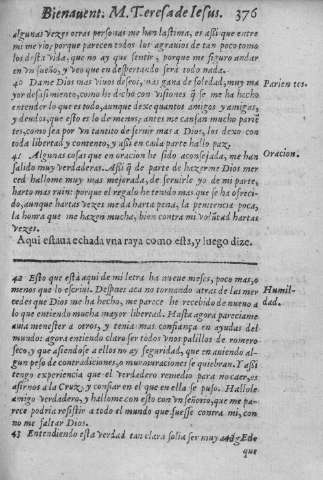 Bienauent. M. Teresa de Iesus. 376
algunas vezes otras personas me han lastima, es assi que entre
mi me rio; porque parecen todos los agrauios de tan poco tomo
los desta vida, que no ay que sentir, porque me figuro andar
en vn sueño, y veo que en despertando será todo nada.
40 Dame Dios mas viuos deseos, mas gana de soledad, muy ma
yor desasimiento, como he dicho con visiones q̃ se me ha hecho
entender lo que es todo, aunque dexe quantos amigos y amigas,
y deudos, que esto es lo de menos; antes me cansan mucho pariẽ
tes, como sea por vn tantito de seruir mas a Dios, los dexo con
toda libertad y contento, y assi en cada parte hallo paz.
Parientes.
41 Algunas cosas que en oracion he sido aconsejada, me han
salido muy verdaderas. Assi q̃ de parte de hazerme Dios mer
ced hallome muy mas mejorada, de seruirle yo de mi parte,
harto mas ruin: porque el regalo he tenido mas que se ha ofreci-
do, aunque hartas vezes me da harta pena, la penitencia poca,
la honra que me hazen mucha, bien contra mi volũtad hartas
vezes.
Oracion.
Aqui estaua echada vna raya como esta, y luego dize.
42 Esto que està aqui de mi letra ha nueue meses, poco mas, o
menos que lo escriui. Despues aca no tornando atras de las mer
cedes que Dios me ha hecho, me parece he recebido de nueuo a
lo que entiendo mucha mayor libertad. Hasta agora pareciame
auia menester a otros, y tenia mas confiança en ayudas del
mundo: agora entiendo claro ser todos vnos palillos de romero
seco, y que asiendose a ellos no ay seguridad, que en auiendo al-
gun peso de contradiciones, o murmuraciones se quiebran. Y assi
tengo experiencia que el verdadero remedio para no caer, es
asirnos a la Cruz, y confiar en el que en ella se puso. Hallole
amigo verdadero, y hallome con esto con vn señorio, que me pa-
rece podria resistir a todo el mundo que fuesse contra mi, con
no me faltar Dios.
Humildad.
43 Entendiendo esta verdad tan clara solia ser muy amiga de
que